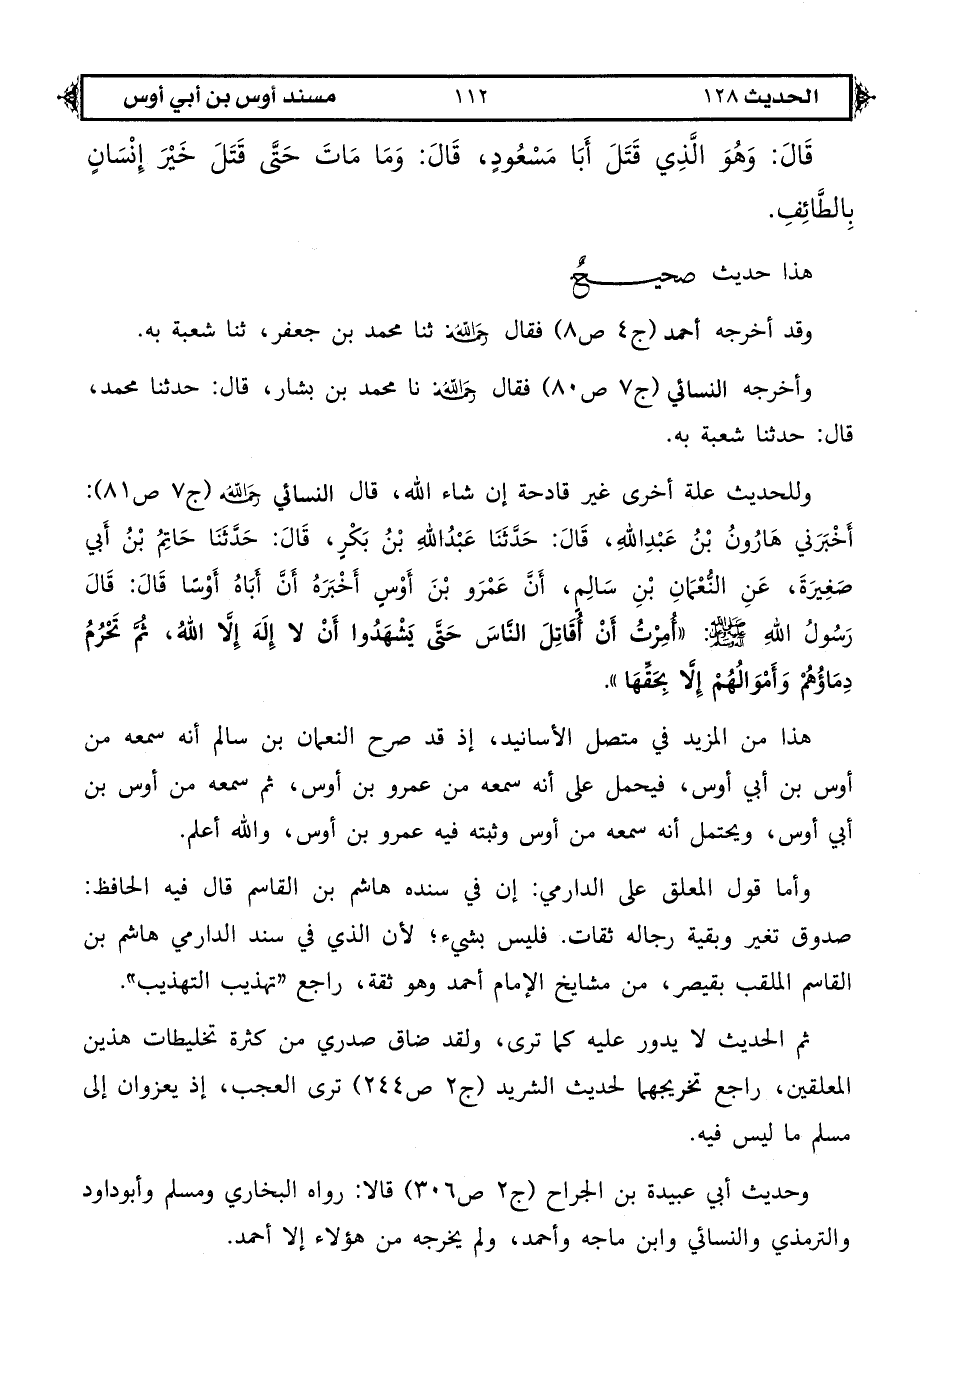 الحديث ١٢٨ ١١٢ مسند أوس بن أبي أوس
قَالَ: وَهُوَ الَّذِي قَتَلَ أَبَا مَسْعُودٍ، قَالَ: وَمَا مَاتَ حَتَّى قَتَلَ خَيْرَ إِنْسَانٍ
بِالطَّائِفِ.
هذا حديث صحيحٌ
وقد أخرجه أحمد (ج٤ ص٨) فقال رحمه الله: ثنا محمد بن جعفر، ثنا شعبة به.
وأخرجه النسائي (ج٧ ص٨٠) فقال رحمه الله: نا محمد بن بشار، قال: حدثنا محمد،
قال: حدثنا شعبة به.
وللحديث علة أخرى غير قادحة إن شاء الله، قال النسائي رحمه الله (ج٧ ص٨١):
أَخْبَرَنِي هَارُونُ بْنُ عَبْدِاللهِ، قَالَ: حَدَّثَنَا عَبْدُاللهِ بْنُ بَكْرٍ، قَالَ: حَدَّثَنَا حَاتِمُ بْنُ أَبِي
صَغِيرَةَ، عَنِ النُّعْمَانِ بْنِ سَالِمٍ، أَنَّ عَمْرَو بْنَ أَوْسٍ أَخْبَرَهُ أَنَّ أَبَاهُ أَوْسًا قَالَ: قَالَ
رَسُولُ اللهِ ﷺ: «أُمِرْتُ أَنْ أُقَاتِلَ النَّاسَ حَتَّى يَشْهَدُوا أَنْ لا إِلَهَ إِلَّا اللهُ، ثُمَّ تَحْرُمُ
دِمَاؤُهُمْ وَأَمْوَالُهُمْ إِلَّا بِحَقِّهَا».
هذا من المزيد في متصل الأسانيد، إذ قد صرح النعمان بن سالم أنه سمعه من
أوس بن أبي أوس، فيحمل على أنه سمعه من عمرو بن أوس، ثم سمعه من أوس بن
أبي أوس، ويحتمل أنه سمعه من أوس وثبته فيه عمرو بن أوس، والله أعلم.
وأما قول المعلق على الدارمي: إن في سنده هاشم بن القاسم قال فيه الحافظ:
صدوق تغير وبقية رجاله ثقات. فليس بشيء؛ لأن الذي في سند الدارمي هاشم بن
القاسم الملقب بقيصر، من مشايخ الإمام أحمد وهو ثقة، راجع "تهذيب التهذيب".
ثم الحديث لا يدور عليه كما ترى، ولقد ضاق صدري من كثرة تخليطات هذين
المعلقين، راجع تخريجهما لحديث الشريد (ج٢ ص٢٤٤) ترى العجب، إذ يعزوان إلى
مسلم ما ليس فيه.
وحديث أبي عبيدة بن الجراح (ج٢ ص٣٠٦) قالا: رواه البخاري ومسلم وأبوداود
والترمذي والنسائي وابن ماجه وأحمد، ولم يخرجه من هؤلاء إلا أحمد.